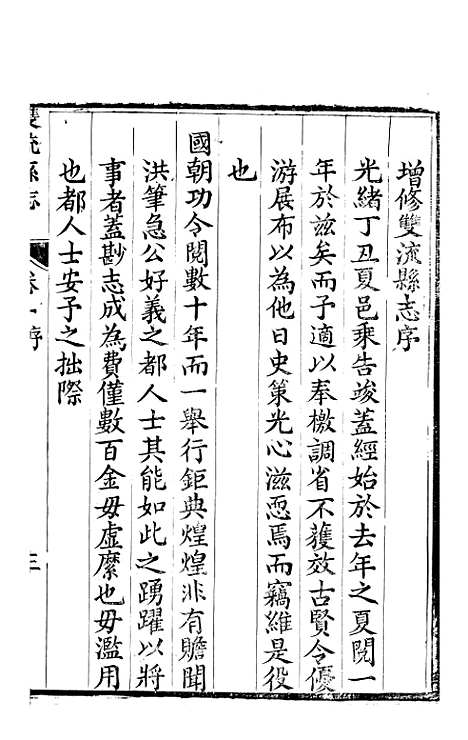 增修雙流縣志序
光緒丁丑夏邑乘告竣蓋經始於去年之夏閱一
年於茲矣而予適以奉檄調省不獲效古賢令優
游展布以為他日史策光心滋恧焉而竊維是役
也
國朝功令閱數十年而一舉行鉅典煌煌非有贍聞
洪筆急公好義之都人士其能如此之踴躍以將
事者蓋尠志成為費僅數百金毋虛縻也毋濫用
也都人士安予之拙際
雙流縣志
卷一序
三